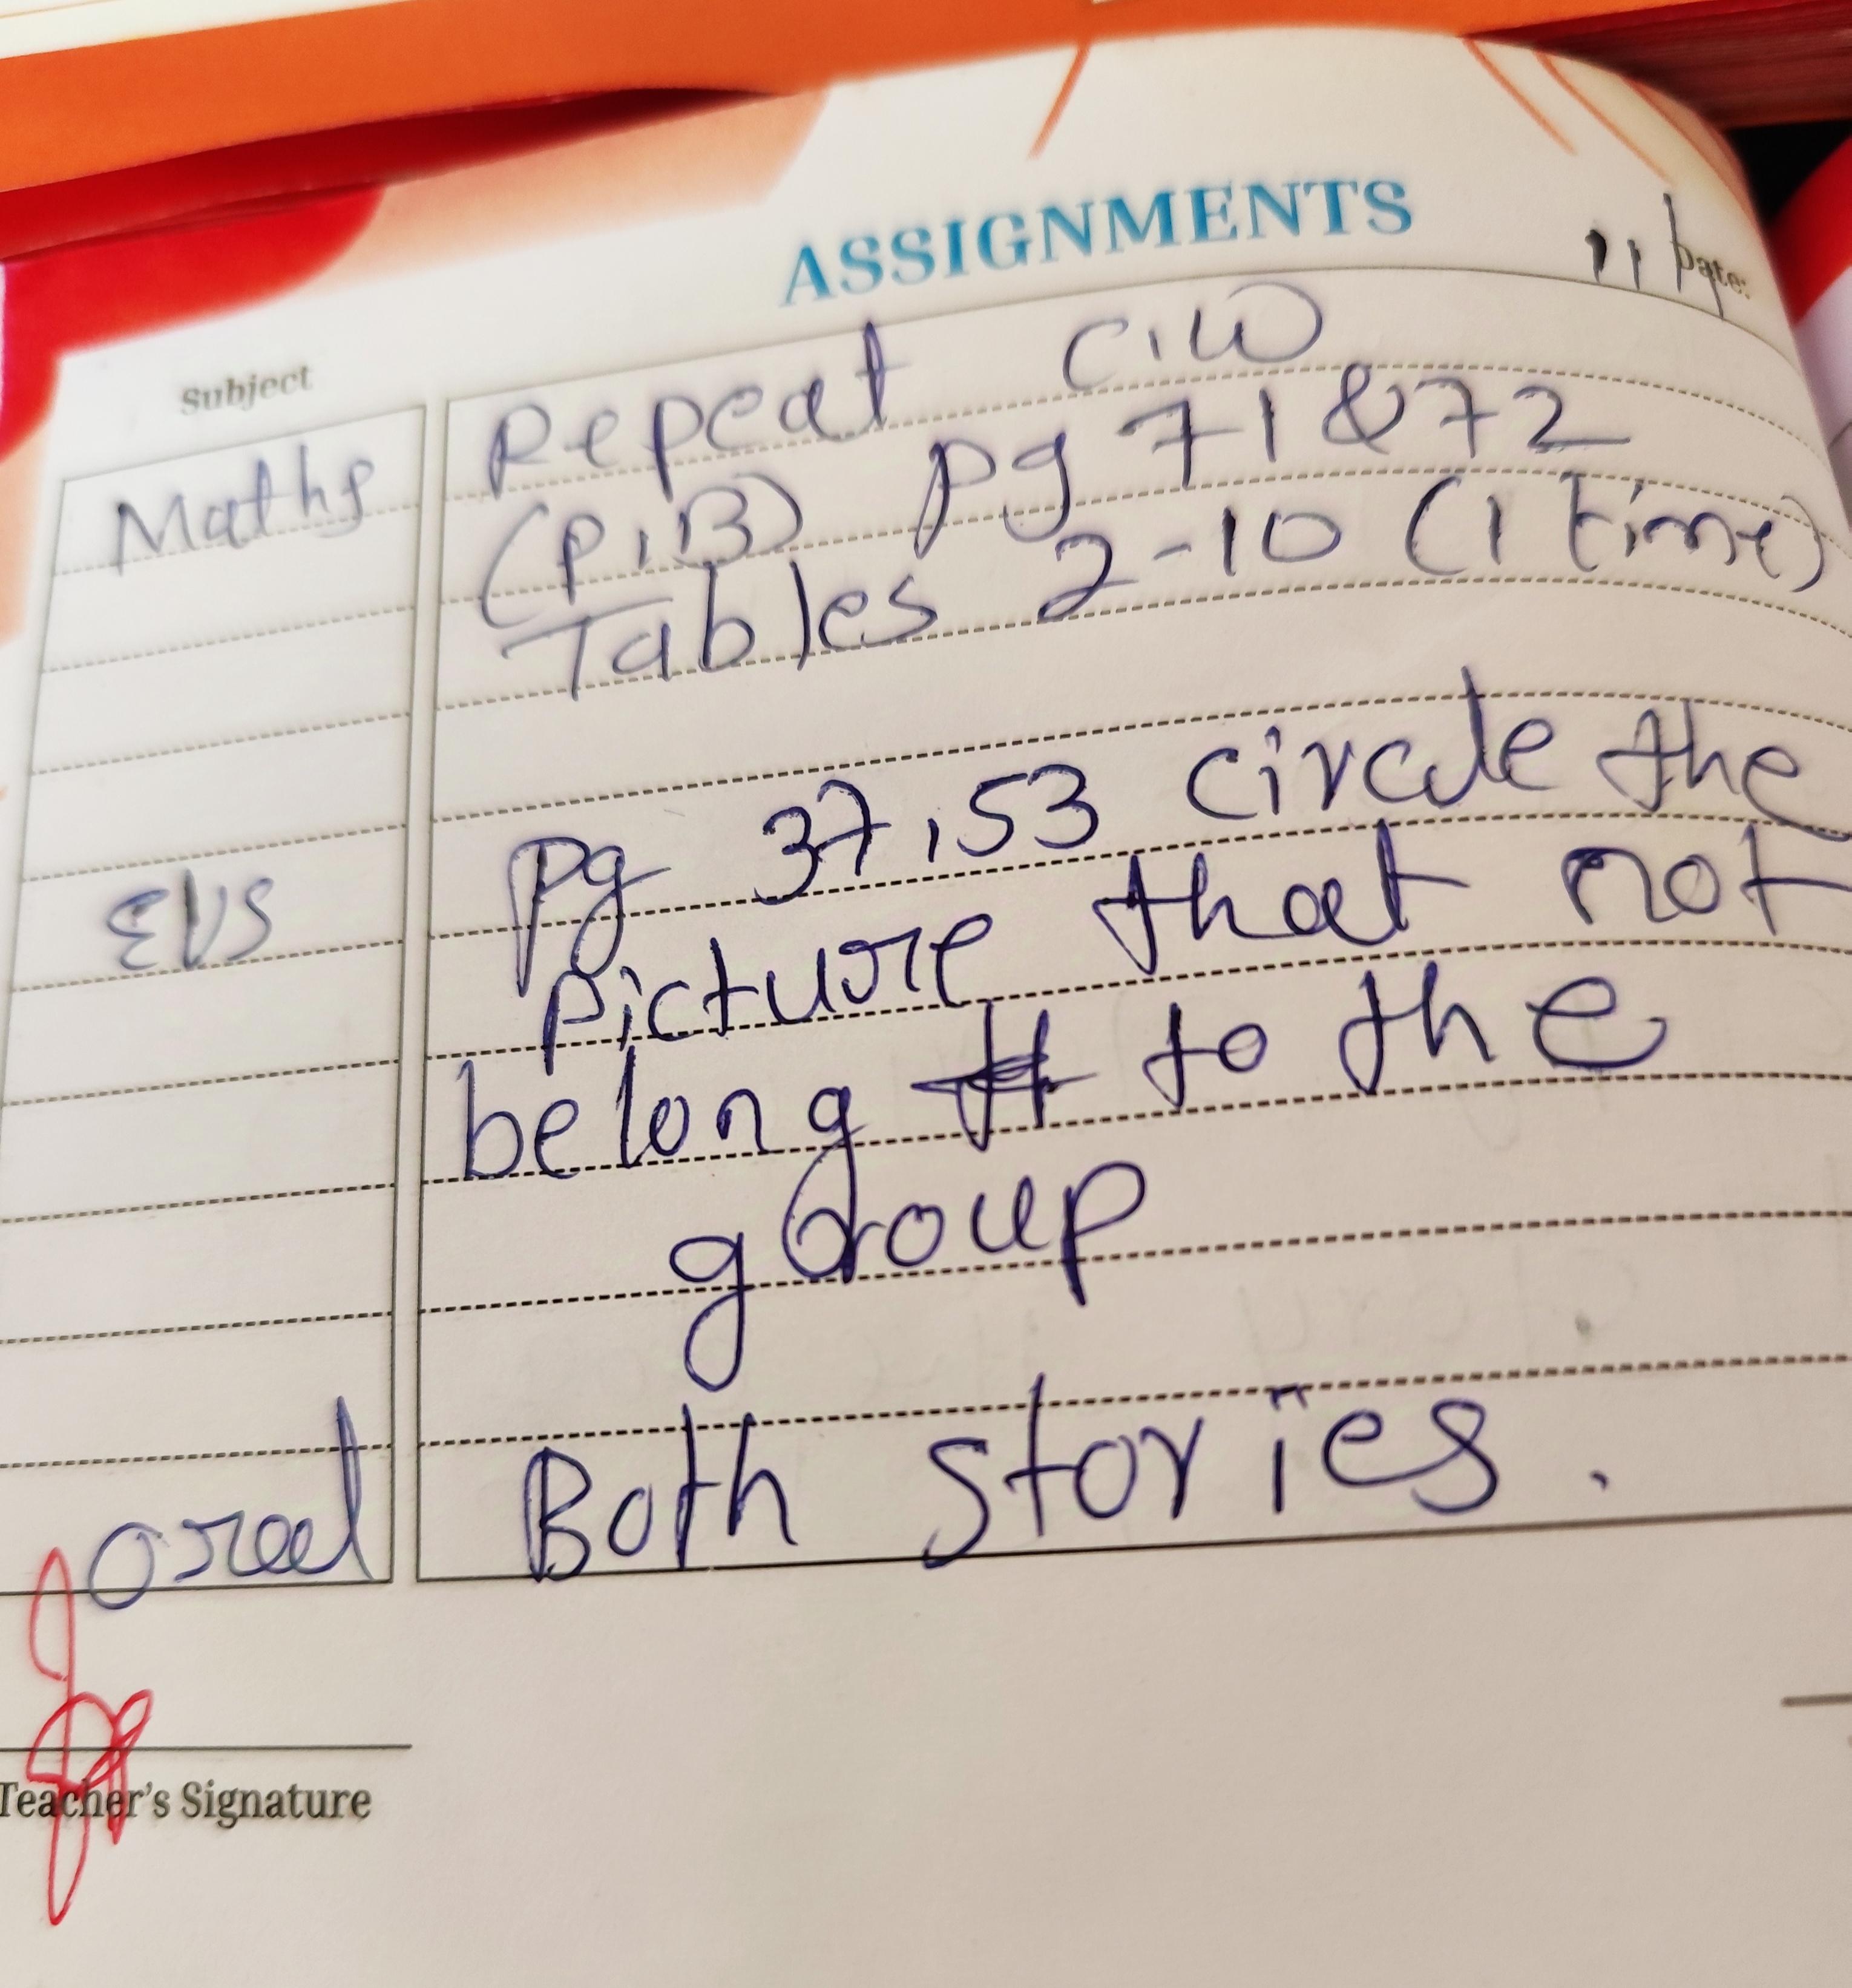 ASSIGNMENTS
Date:
Subject
Maths Repeat C.W
(P.B) Pg 71 & 72
Tables 2-10 (1 time)
EVS Pg 37, 53 circle the
picture that not
belong to the
group
oral Both stories.
Teacher's Signature